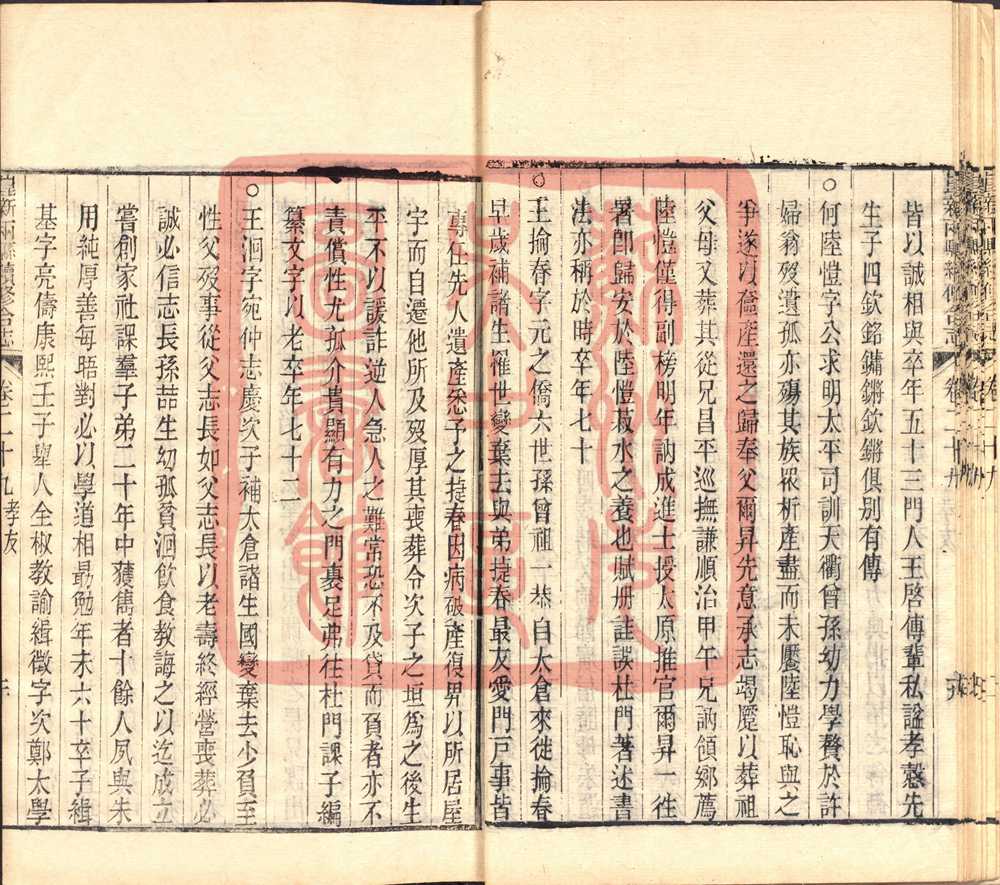 皆以誠相與卒年五十三門人王啓傳輩私謚孝愨先
生子四欽銘鏽鏘欽鏘俱別有傳
○何陸愷字公求明太平司訓天衢曾孫幼力學贅於許
婦翁歿遺孤亦殤其族衆析產盡而未饜陸愷恥與之
爭遂以奩產還之歸奉父爾昇先意承志竭蹷以葬祖
父母又葬其從兄昌平巡撫謙順治甲午兄訥領鄉薦
陸愷僅得副榜明年訥成進士授太原推官爾昇一往
署卽歸安於陸愷菽水之養也賦册詿誤杜門著述書
法亦稱於時卒年七十
○王掄春字元之僑六世孫曾祖一恭自太倉來徙掄春
早歲補諸生罹世變棄去與弟捷春最友愛門戸事皆
專任先人遺產悉予之捷春因病破產復畀以所居屋
宇而自遷他所及歿厚其喪葬令次子之垣爲之後生
平不以諼詐逆人急人之難常恐不及貸而負者亦不
責償性尤孤介貴顯有力之門裹足弗往杜門課子編
纂文字以老卒年七十二
○王洄字宛仲志慶次子補太倉諸生國變棄去少負至
性父歿事從父志長如父志長以老壽終經營喪葬必
誠必信志長孫喆生幼孤貧洄飲食教誨之以迄成立
嘗創家社課羣子弟二十年中獲雋者十餘人夙與朱
用純厚善每晤對必以學道相最勉年未六十卒子緝
基字亮儔康熙壬子舉人全椒教諭緝徵字次鄭太學
崑新兩縣續修合志
卷二十九孝友